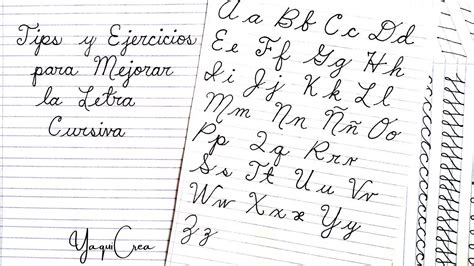 Tips y Ejercicios
para Mejorar
la Letra
Cursiva
YaquiCrea
Aa Bb Cc Dd
Ee Ff Gg Hh
Ii Jj Kk Ll
Mm Nn Ññ Oo
Pp Qq Rrr
Ss Tt Uu Vv
Ww Xxx Yy
Zz